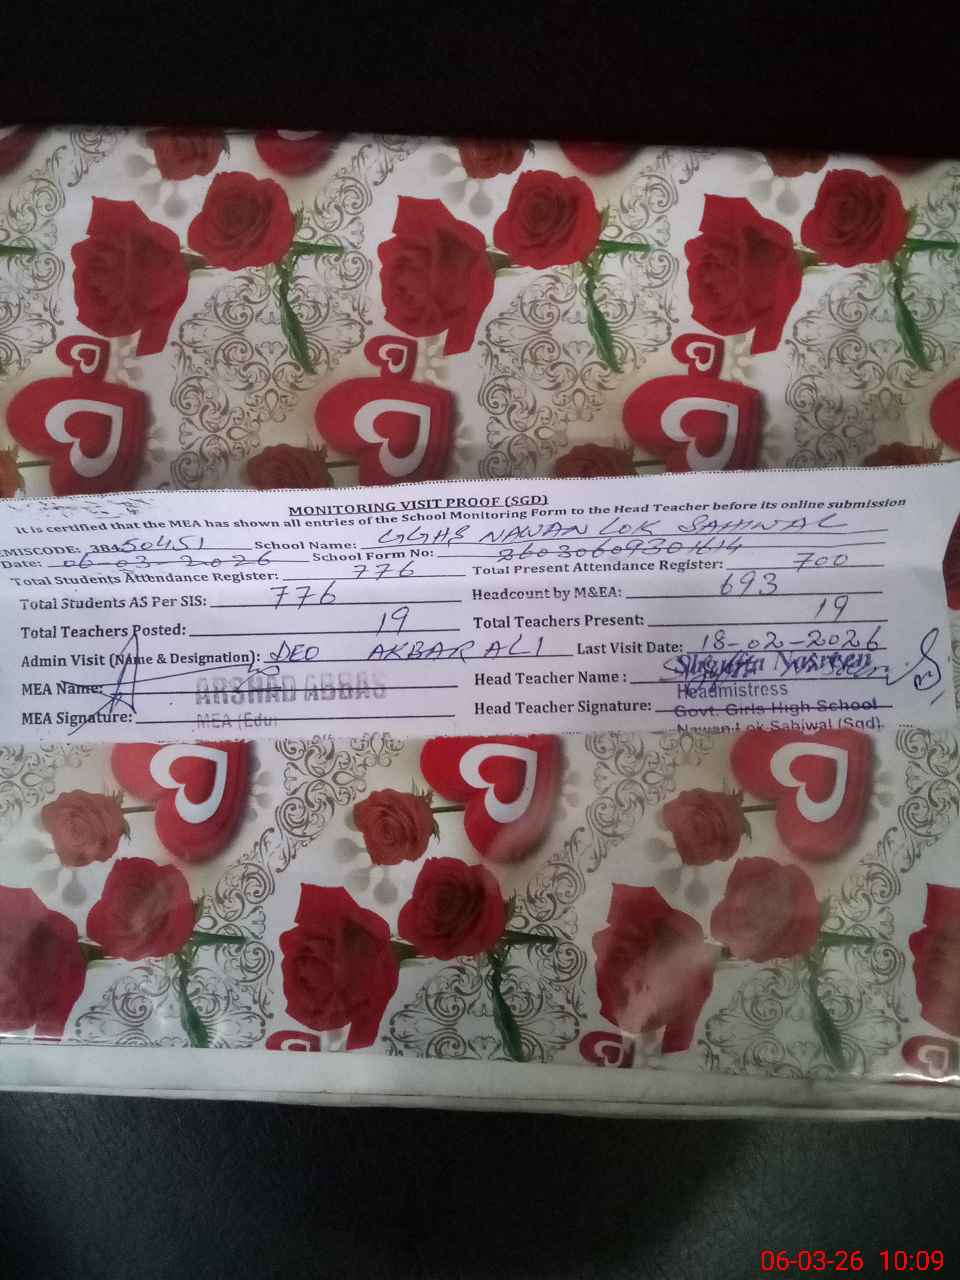 MONITORING VISIT PROOF (SGD)
It is certified that the MEA has shown all entries of the School Monitoring Form to the Head Teacher before its online submission
EMISCODE: 38450451 School Name: GGHS NAWAN LOK SAHIWAL
Date: 06-03-2026 School Form No:
Total Students Attendance Register: 776 Total Present Attendance Register: 700
Total Students AS Per SIS: 776 Headcount by M&EA: 693
Total Teachers Posted: 19 Total Teachers Present: 19
Admin Visit (Name & Designation): DEO AKBAR ALI Last Visit Date: 18-02-2026
MEA Name: ARSHAD ABBAS Head Teacher Name: Shgufta Nasreen
Headmistress
MEA Signature: MEA (Edu) Head Teacher Signature: Govt. Girls High School
Nawan Lok Sahiwal (Sgd).
06-03-26 10:09